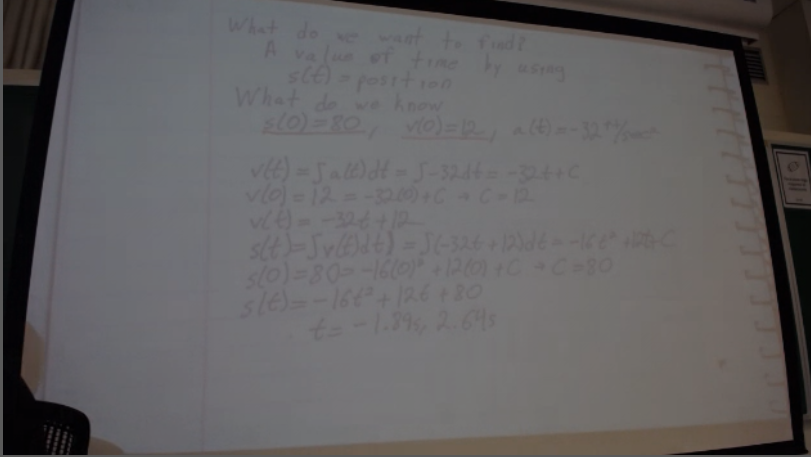 What do we want to find?
A value of time by using
s(t) = position
What do we know
s(0)=80, v(0)=12, a(t)=-32 ft/sec²
v(t) = ∫a(t)dt = ∫-32dt = -32t + C
v(0) = 12 = -32(0) + C → C = 12
v(t) = -32t + 12
s(t) = ∫v(t)dt) = ∫(-32t + 12)dt = -16t² + 12t + C
s(0) = 80 = -16(0)² + 12(0) + C → C = 80
s(t) = -16t² + 12t + 80
t = -1.89s, 2.64s